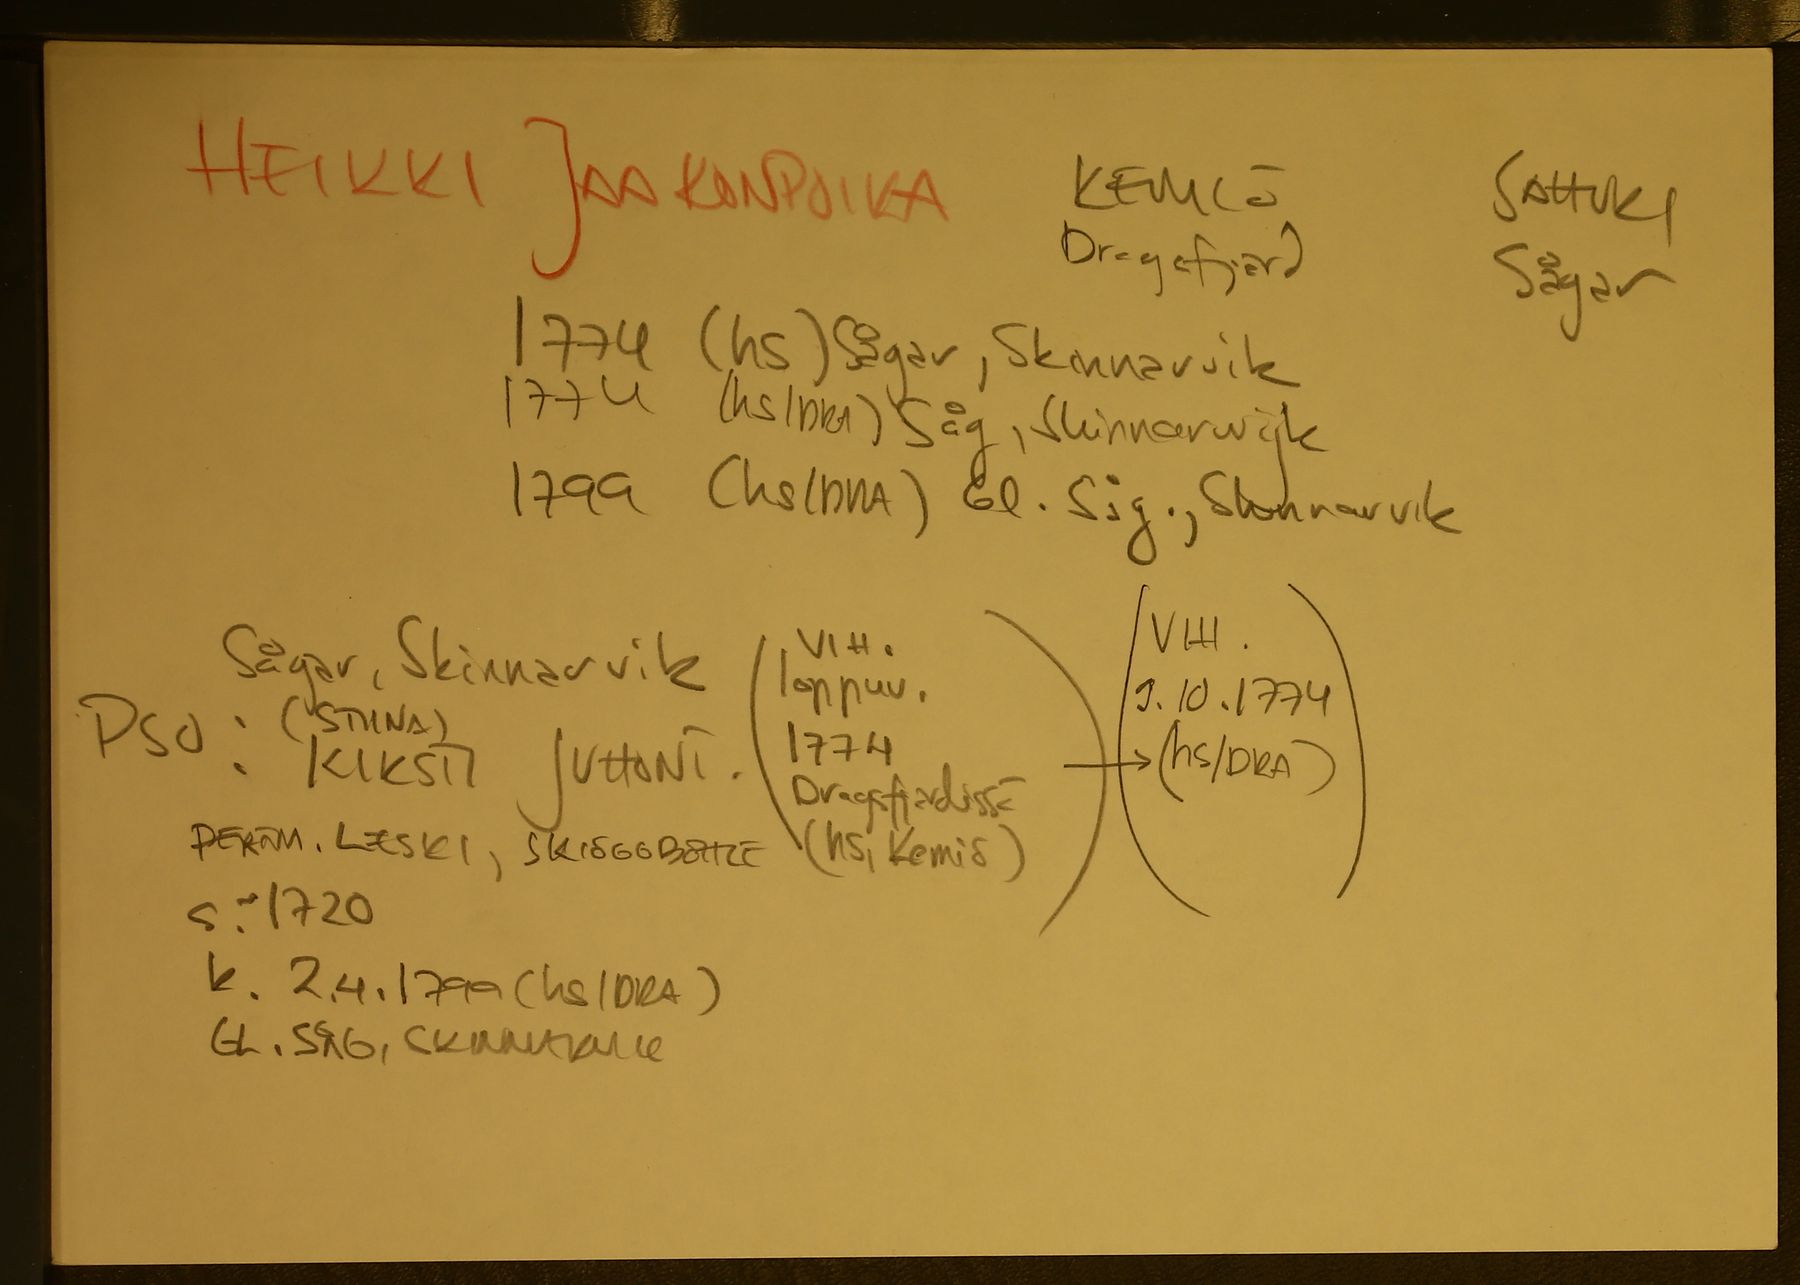 HEIKKI JAAKONPOIKA KEMIÖ SAHURI
Dragsfjärd Sågar
1774 (hs) Sågar, Skinnarvik
1774 (hs/DRA) Såg, Skinnarwijk
1799 (hs/DRA) Gl. Såg., Skinnarvik
Sågar, Skinnarvik
PSO: (STIINA)
KIRSTI JUHONT.
PERÄM. LESKI, SKIÖGGBÖHLE
s. ~1720
k. 2.4.1799 (hs/DRA)
GL. SÅG, SKINNARVIK
(VIH.
loppuv.
1774
Dragsfjärdissä
(hs, Kemiö))
→ (VIH.
9.10.1774
(hs/DRA))